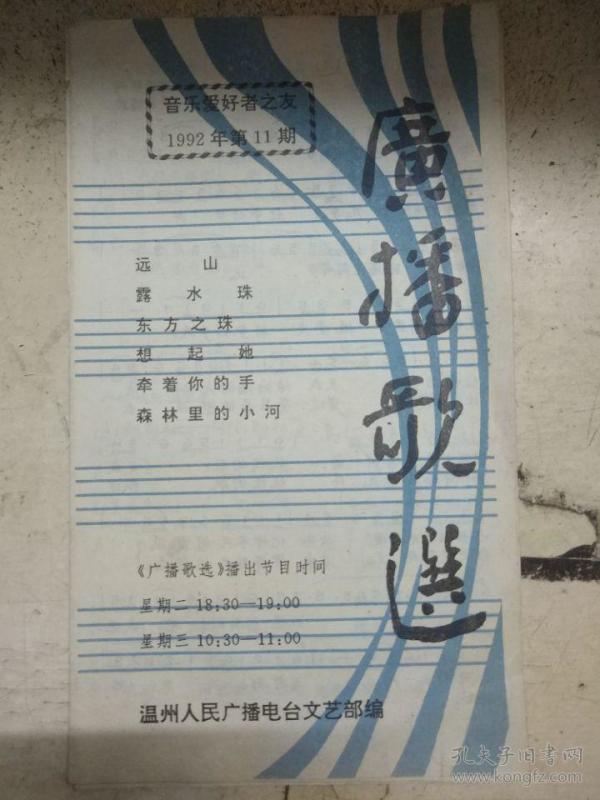 音乐爱好者之友
1992年第11期
廣播歌選
远山
露水珠
东方之珠
想起她
牵着你的手
森林里的小河
《广播歌选》播出节目时间
星期二 18:30—19:00
星期三 10:30—11:00
温州人民广播电台文艺部编
孔夫子旧书网
www.kongfz.com